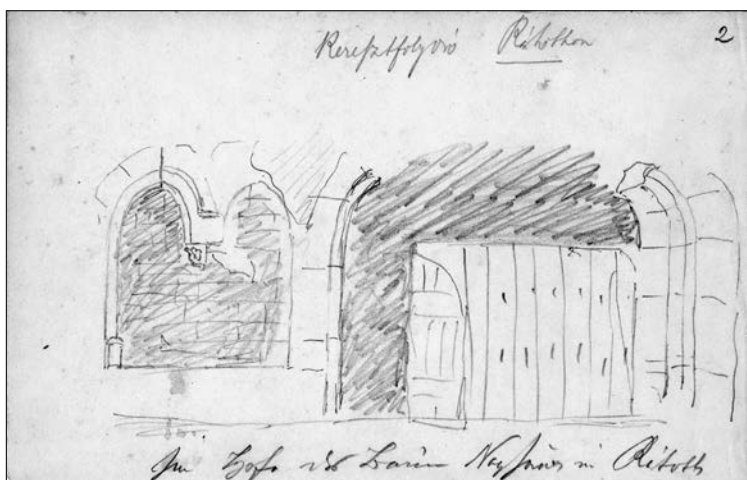 Keresztfolyosó Rátothon 2
Im Hofe des Baron Neyhaus in Rátoth